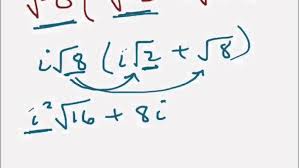 √8 (
i√8 (i√2 + √8)
i²√16 + 8i